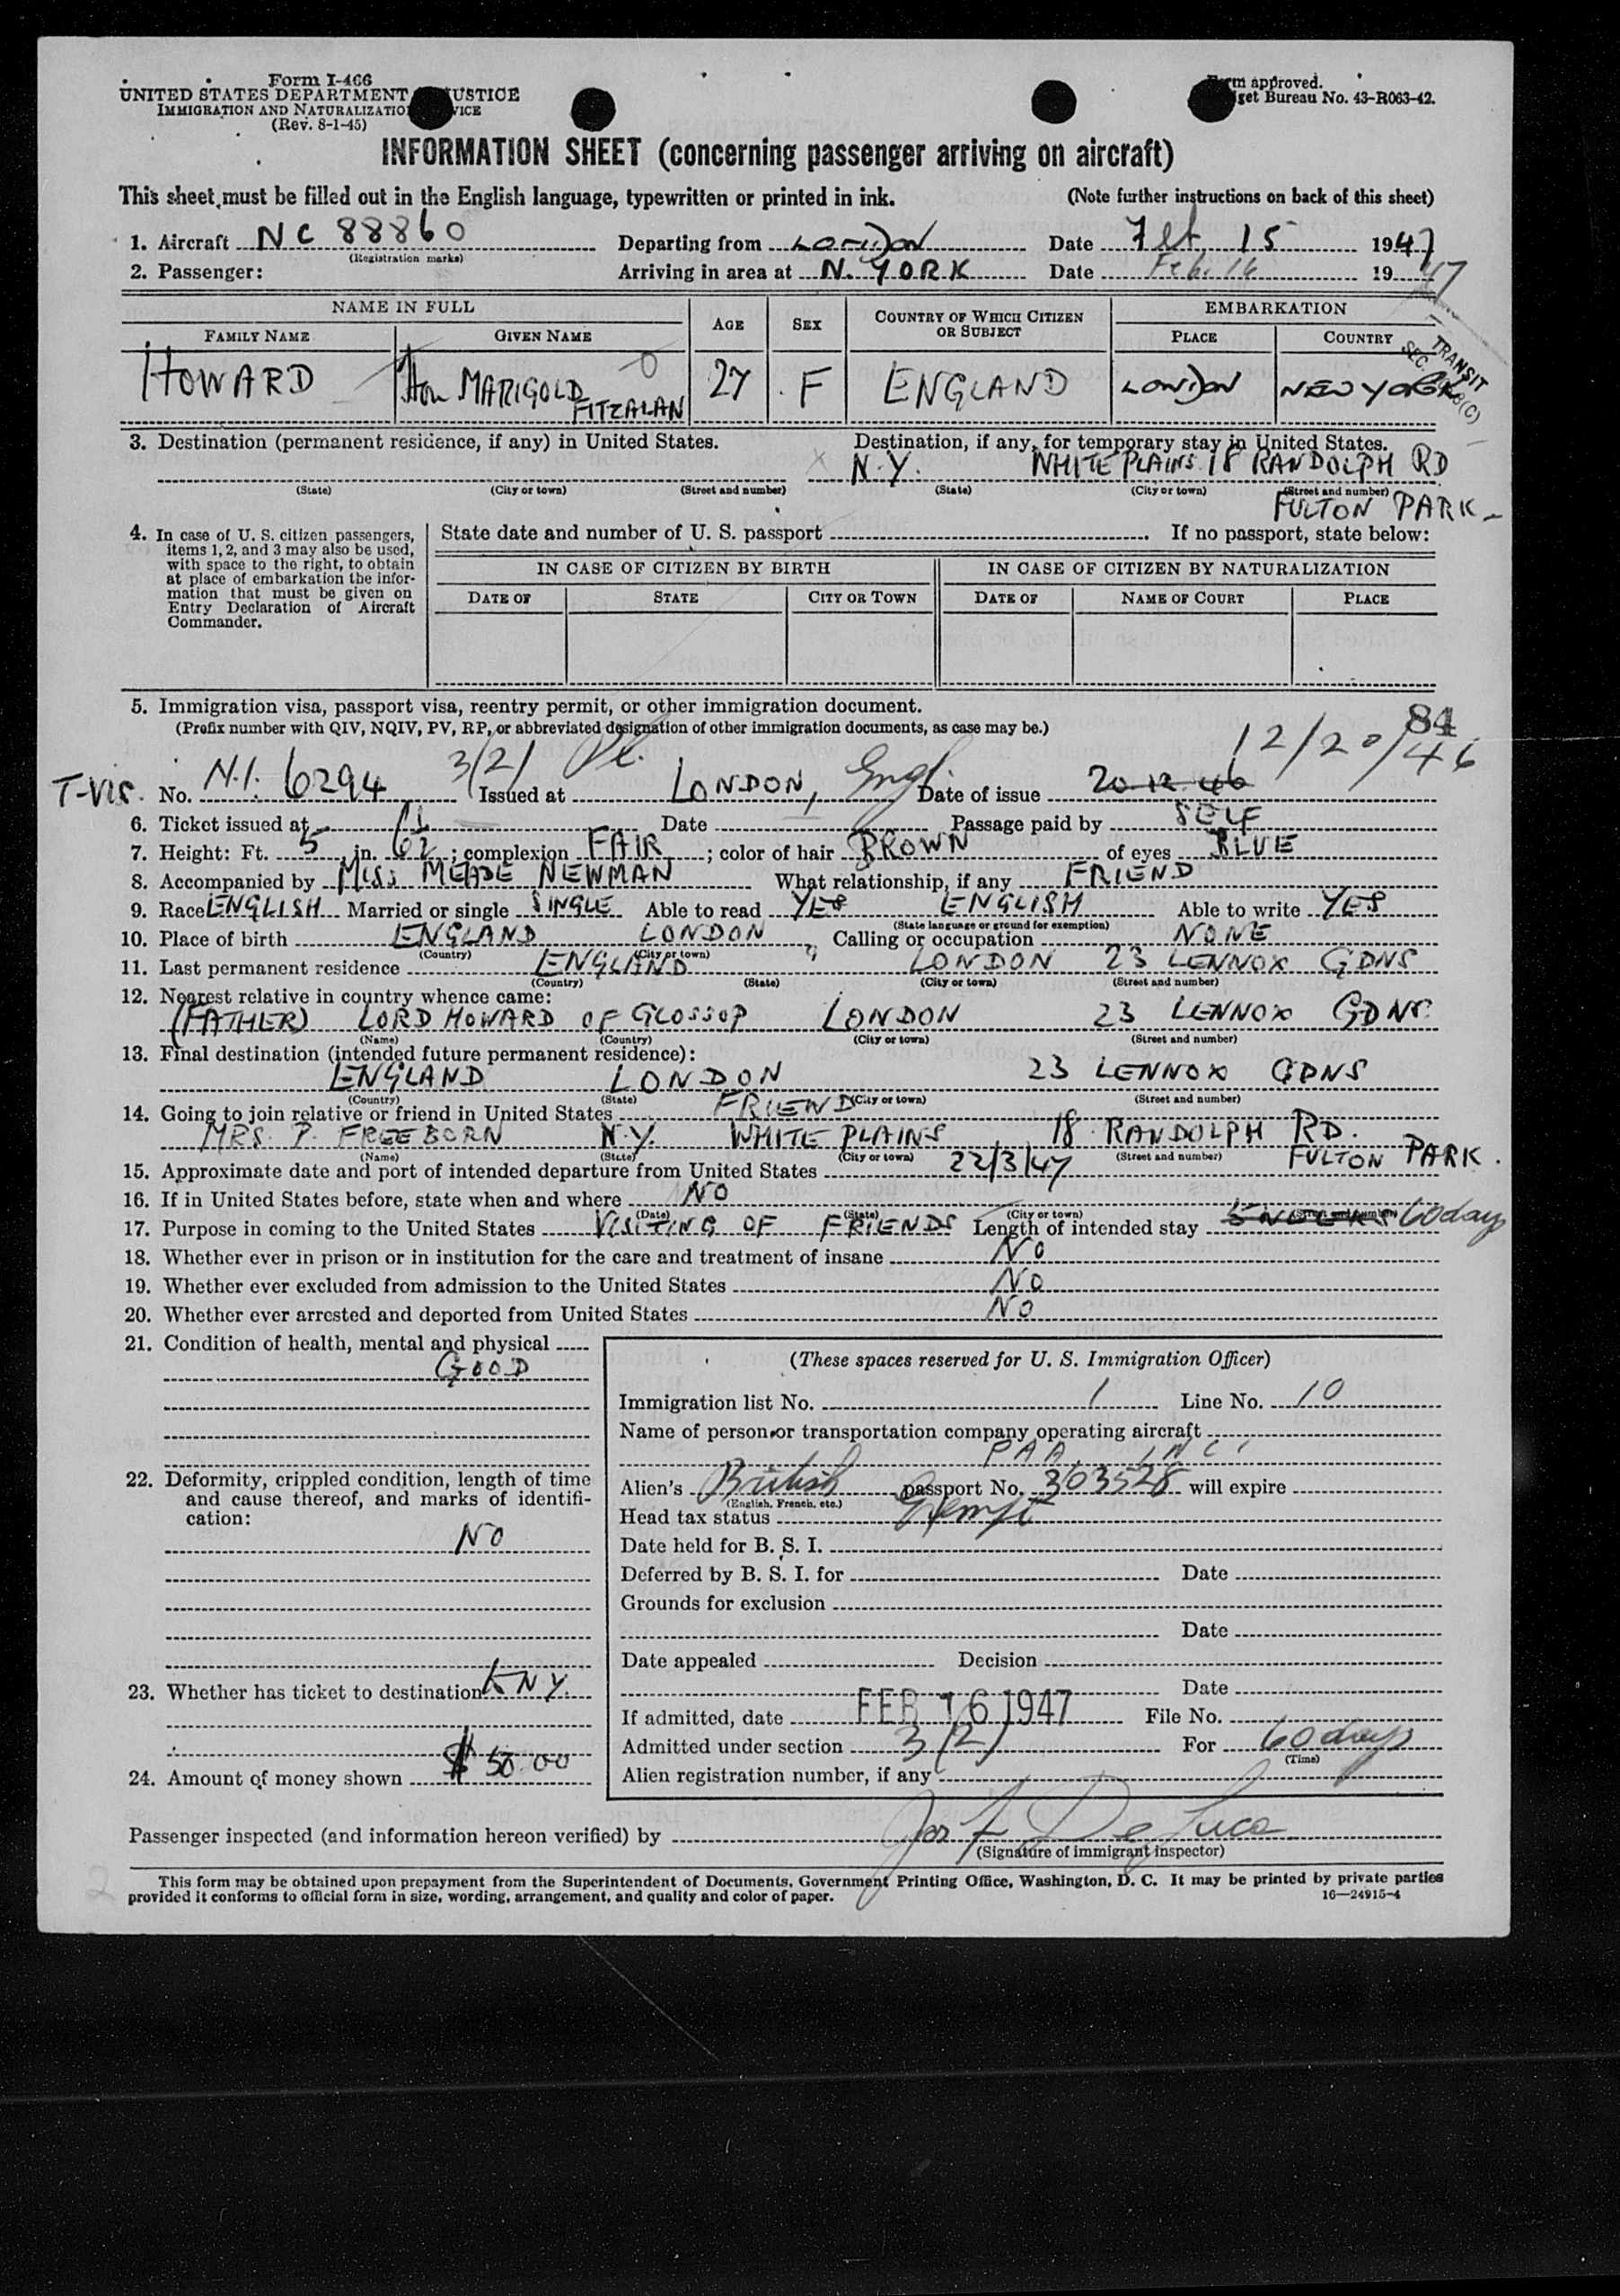 Form I-466
UNITED STATES DEPARTMENT JUSTICE
IMMIGRATION AND NATURALIZATION SERVICE
(Rev. 8-1-45)
Form approved.
Budget Bureau No. 43-R063-42.
INFORMATION SHEET (concerning passenger arriving on aircraft)
This sheet must be filled out in the English language, typewritten or printed in ink. (Note further instructions on back of this sheet)
1. Aircraft NC 88860 Departing from LONDON Date Feb 15 1947
(Registration marks)
2. Passenger: Arriving in area at N. YORK Date Feb. 16 1947
NAME IN FULL AGE SEX COUNTRY OF WHICH CITIZEN OR SUBJECT EMBARKATION
FAMILY NAME GIVEN NAME PLACE COUNTRY
TRANSIT
HOWARD Hon MARIGOLD FITZALAN 27 F ENGLAND LONDON NEW YORK
3. Destination (permanent residence, if any) in United States. Destination, if any, for temporary stay in United States.
N.Y. WHITE PLAINS 18 RANDOLPH RD
(State) (City or town) (Street and number) (State) (City or town) (Street and number)
FULTON PARK
4. In case of U. S. citizen passengers, items 1, 2, and 3 may also be used, with space to the right, to obtain at place of embarkation the information that must be given on Entry Declaration of Aircraft Commander.
State date and number of U. S. passport If no passport, state below:
IN CASE OF CITIZEN BY BIRTH IN CASE OF CITIZEN BY NATURALIZATION
DATE OF STATE CITY OR TOWN DATE OF NAME OF COURT PLACE
5. Immigration visa, passport visa, reentry permit, or other immigration document.
(Prefix number with QIV, NQIV, PV, RP, or abbreviated designation of other immigration documents, as case may be.)
84
12/20/46
T-Vis. No. N.I. 6294 3/2/ Issued at LONDON, Engl. Date of issue 20-12-46
6. Ticket issued at Date Passage paid by SELF
7. Height: Ft. 5 in. 6½; complexion FAIR; color of hair BROWN of eyes BLUE
8. Accompanied by MISS MEADE NEWMAN What relationship, if any FRIEND
9. Race ENGLISH Married or single SINGLE Able to read YES ENGLISH Able to write YES
(State language or ground for exemption)
10. Place of birth ENGLAND LONDON, Calling or occupation NONE
(Country) (City or town)
11. Last permanent residence ENGLAND LONDON 23 LENNOX GDNS
(Country) (State) (City or town) (Street and number)
12. Nearest relative in country whence came:
(FATHER) LORD HOWARD OF GLOSSOP LONDON 23 LENNOX GDNS
(Name) (Country) (City or town) (Street and number)
13. Final destination (intended future permanent residence):
ENGLAND LONDON 23 LENNOX GDNS
(Country) (State) (City or town) (Street and number)
14. Going to join relative or friend in United States FRIEND
MRS. P. FREEBORN N.Y. WHITE PLAINS 18 RANDOLPH RD.
(Name) (State) (City or town) (Street and number)
FULTON PARK.
15. Approximate date and port of intended departure from United States 22/3/47
16. If in United States before, state when and where NO
(Date) (State) (City or town) (Street and number)
17. Purpose in coming to the United States VISITING OF FRIENDS Length of intended stay 60 days
18. Whether ever in prison or in institution for the care and treatment of insane NO
19. Whether ever excluded from admission to the United States NO
20. Whether ever arrested and deported from United States NO
21. Condition of health, mental and physical
GOOD
22. Deformity, crippled condition, length of time and cause thereof, and marks of identification:
NO
23. Whether has ticket to destination NY.
24. Amount of money shown $ 50.00
(These spaces reserved for U. S. Immigration Officer)
Immigration list No. 1 Line No. 10
Name of person or transportation company operating aircraft
PAA, INC.
Alien's British passport No. 303528 will expire
(English, French, etc.)
Head tax status Exempt
Date held for B. S. I.
Deferred by B. S. I. for Date
Grounds for exclusion
Date
Date appealed Decision
Date
If admitted, date FEB 16 1947 File No.
Admitted under section 3(2) For 60 days
(Time)
Alien registration number, if any
Passenger inspected (and information hereon verified) by Jos F De Luca
(Signature of immigrant inspector)
This form may be obtained upon prepayment from the Superintendent of Documents, Government Printing Office, Washington, D. C. It may be printed by private parties
provided it conforms to official form in size, wording, arrangement, and quality and color of paper. 16—24915-4